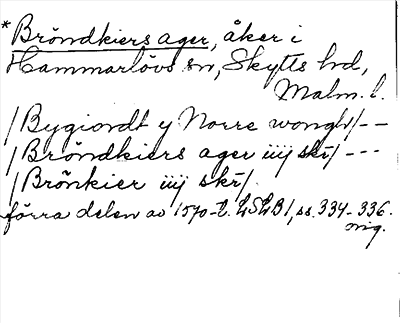 * Bröndkiers ager, åker i
Hammarlövs sn, Skytts hd,
Malm. l.
/Bygiordt y Norre wongh/ – –
/Bröndkiers ager iiij skr̄/ – – –
/Brönkier iiij skr̄/.
förra delen av 1570-t. LSLB1, ss. 334–336.
orig.